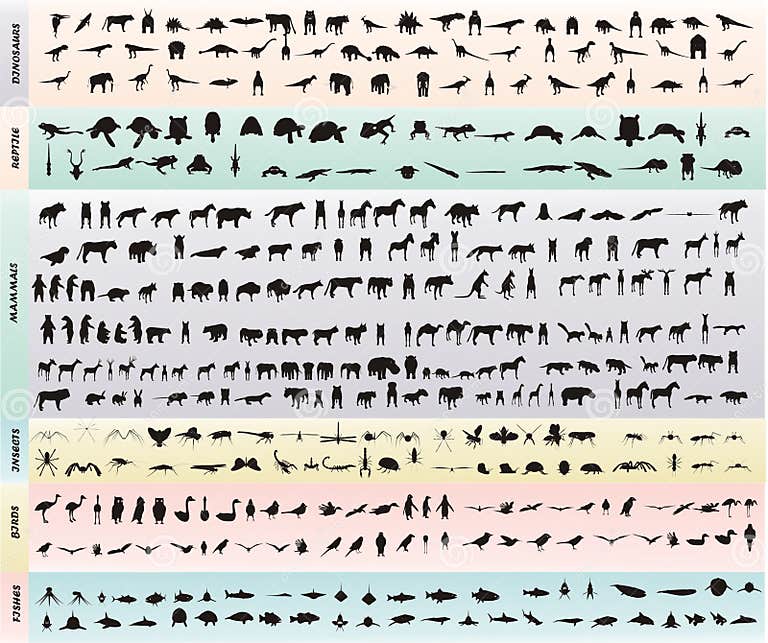 DINOSAURS
REPTILE
MAMMALS
INSECTS
BIRDS
FISHES